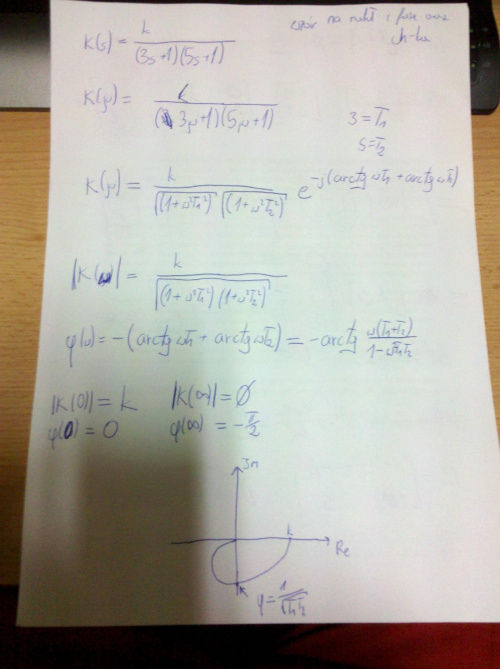 wzór na moduł i fazę oraz
ch-ka
K(s) = k / (3s+1)(5s+1)
K(jω) = k / (3jω+1)(5jω+1)
3 = T₁
5 = T₂
K(jω) = k / √(1+ω²T₁²) √(1+ω²T₂²) e^-j(arctg ωT₁ + arctg ωT₂)
|K(ω)| = k / √(1+ω²T₁²)(1+ω²T₂²)
φ(ω) = -(arctg ωT₁ + arctg ωT₂) = -arctg ω(T₁+T₂) / 1-ω²T₁T₂
|K(0)| = k |K(∞)| = 0
φ(0) = 0 φ(∞) = -π/2
Jm
k
Re
φ = 1/√T₁T₂